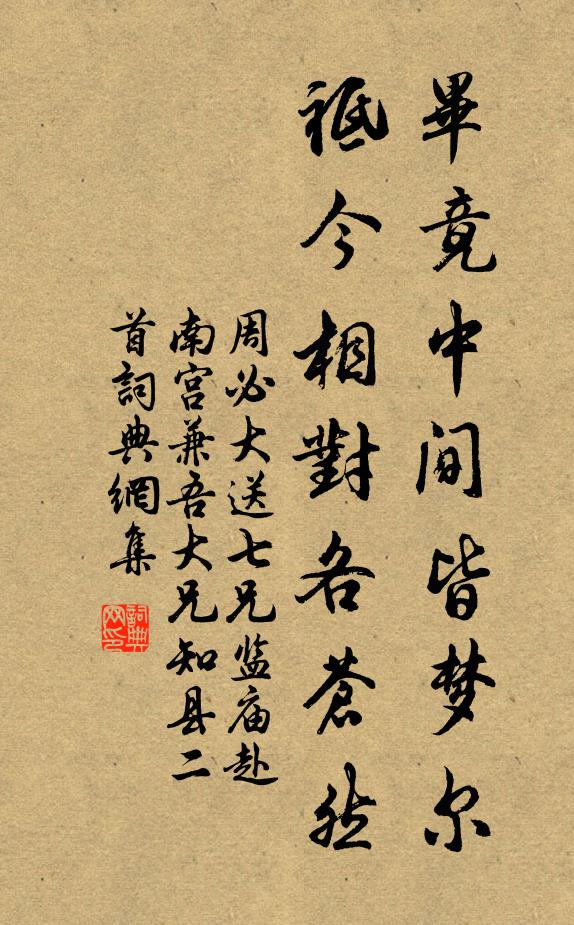 畢竟中间皆梦尔
祗今相對各蒼然
周必大送七兄监庙赴
南宫兼吾大兄知县二
首詞典網集
詞典
网印